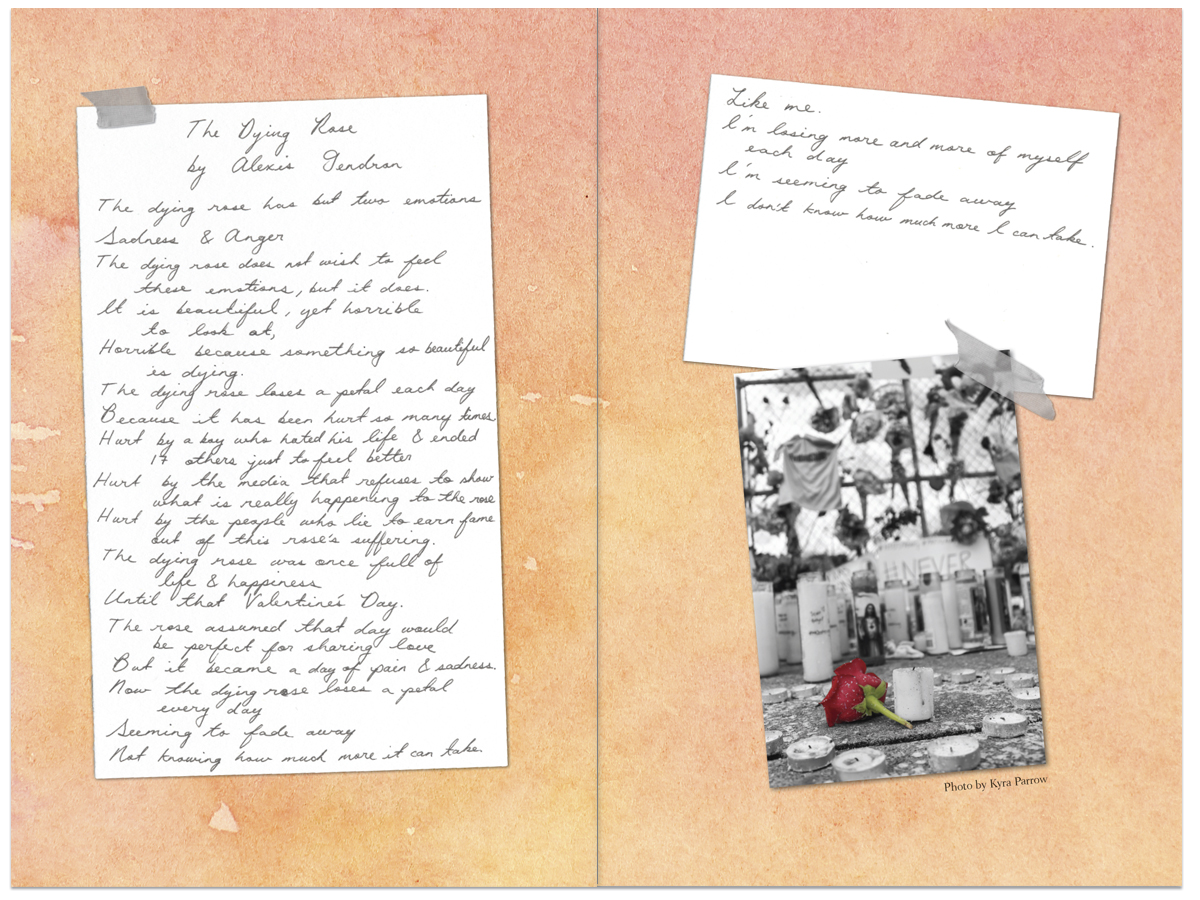 The Dying Rose
by Alexis Gendron
The dying rose has but two emotions
Sadness & Anger
The dying rose does not wish to feel
these emotions, but it does.
It is beautiful, yet horrible
to look at,
Horrible because something so beautiful
is dying.
The dying rose loses a petal each day
Because it has been hurt so many times
Hurt by a boy who hated his life & ended
17 others just to feel better
Hurt by the media that refuses to show
what is really happening to the rose
Hurt by the people who lie to earn fame
out of this rose's suffering.
The dying rose was once full of
life & happiness
Until that Valentine's Day.
The rose assumed that day would
be perfect for sharing love
But it became a day of pain & sadness.
Now the dying rose loses a petal
every day
Seeming to fade away
Not knowing how much more it can take.
Like me.
I'm losing more and more of myself
each day
I'm seeming to fade away
I don't know how much more I can take.
NEVER
Photo by Kyra Parrow